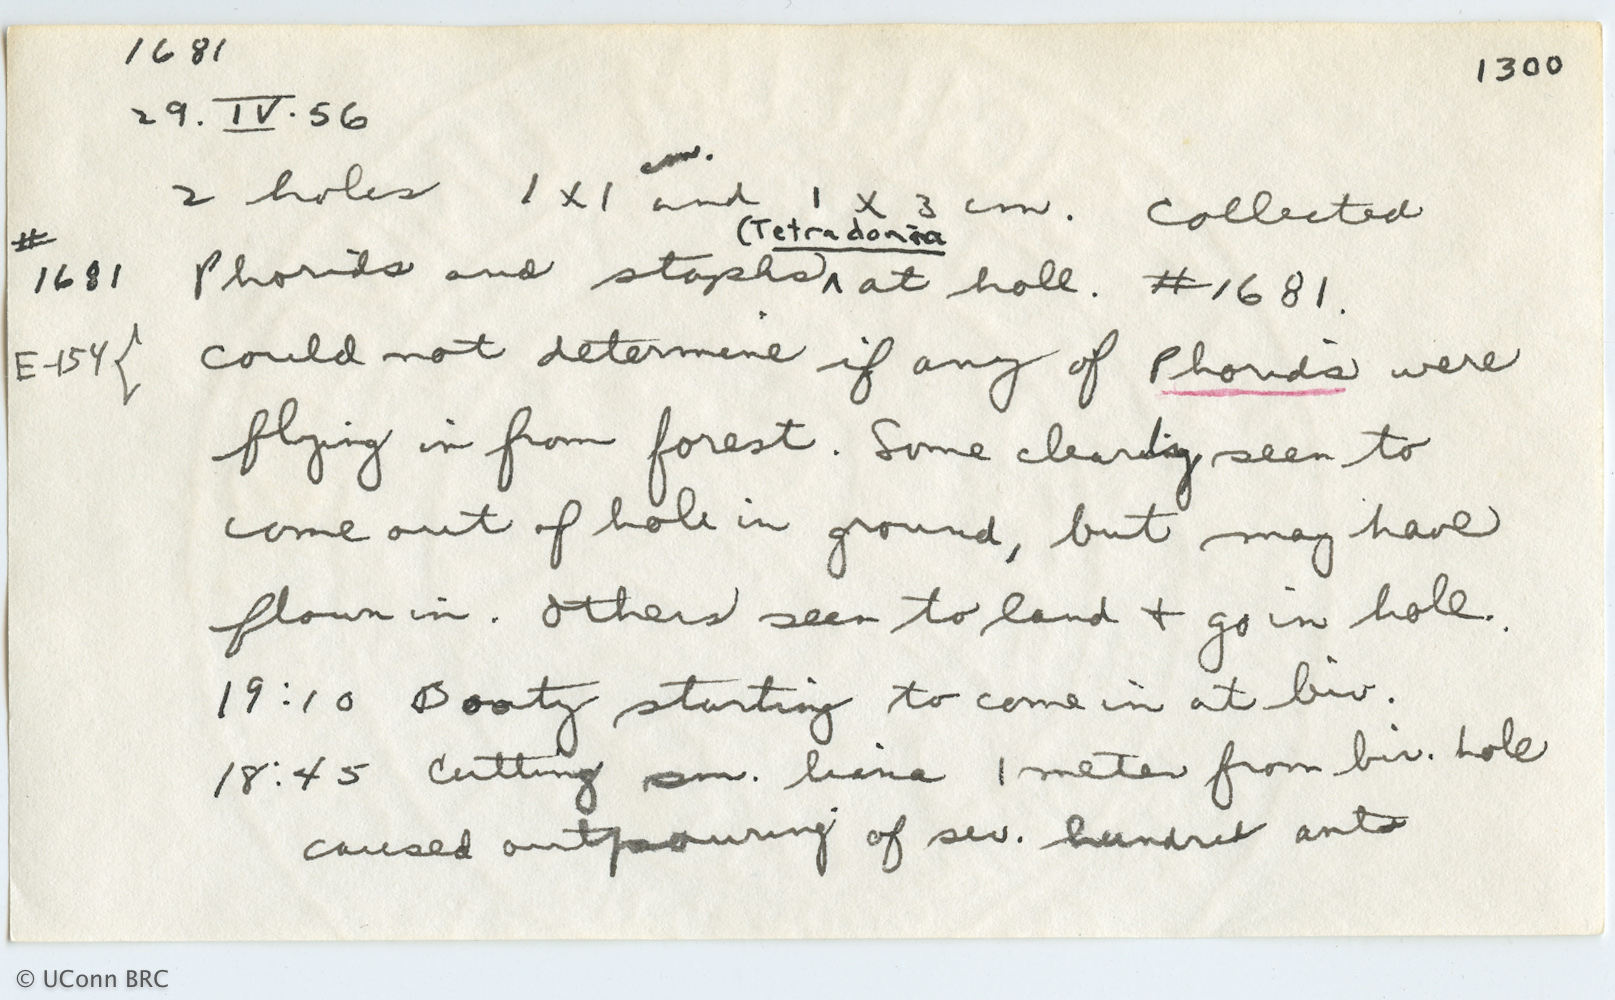 1681
1300
29.IV.56
2 holes 1 x 1 cm. and 1 x 3 cm. Collected
(Tetradonia
# 1681 Phorids and staphs) ^ at hole. #1681.
E-154 { could not determine if any of Phorids were
flying in from forest. Some clearly seen to
come out of hole in ground, but may have
flown in. Others seen to land + go in hole.
19:10 Booty starting to come in at biv.
18:45 Cutting sm. liana 1 meter from biv. hole
caused outpouring of sev. hundred ants
© UConn BRC